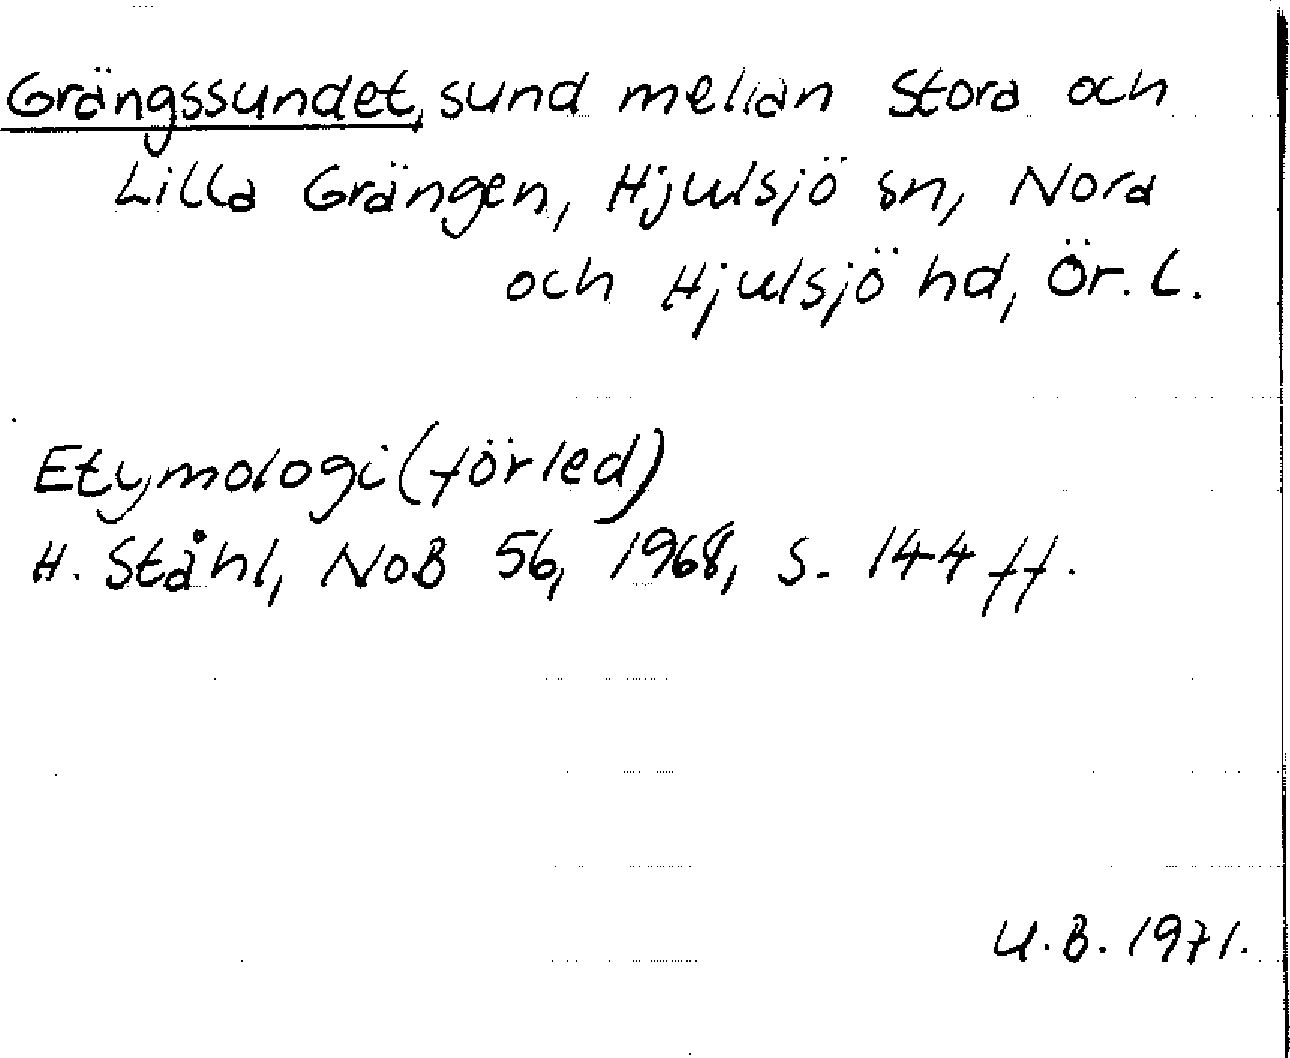 Grängssundet, sund mellan Stora och
Lilla Grängen, Hjulsjö sn, Nora
och Hjulsjö hd, Ör. L.
Etymologi (förled)
H. Ståhl, NoB 56, 1968, s. 144 ff.
U.B. 1971.